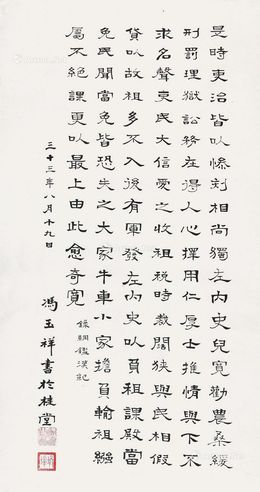 是時吏治皆以慘刻相尚獨左內史兒寬勸農桑緩
刑罰理獄訟務在得人心擇用仁厚士推情與下不
求名聲吏民大信愛之收租稅時裁闊狹與民相假
貸以故租多不入後有軍發左內史以負租課殿當
免民聞當免皆恐失之大家牛車小家擔負輸租繈
屬不絕課更以最上由此愈奇寬
錄朝鑑漢紀
三十三年八月十九日
馮玉祥書於桂堂